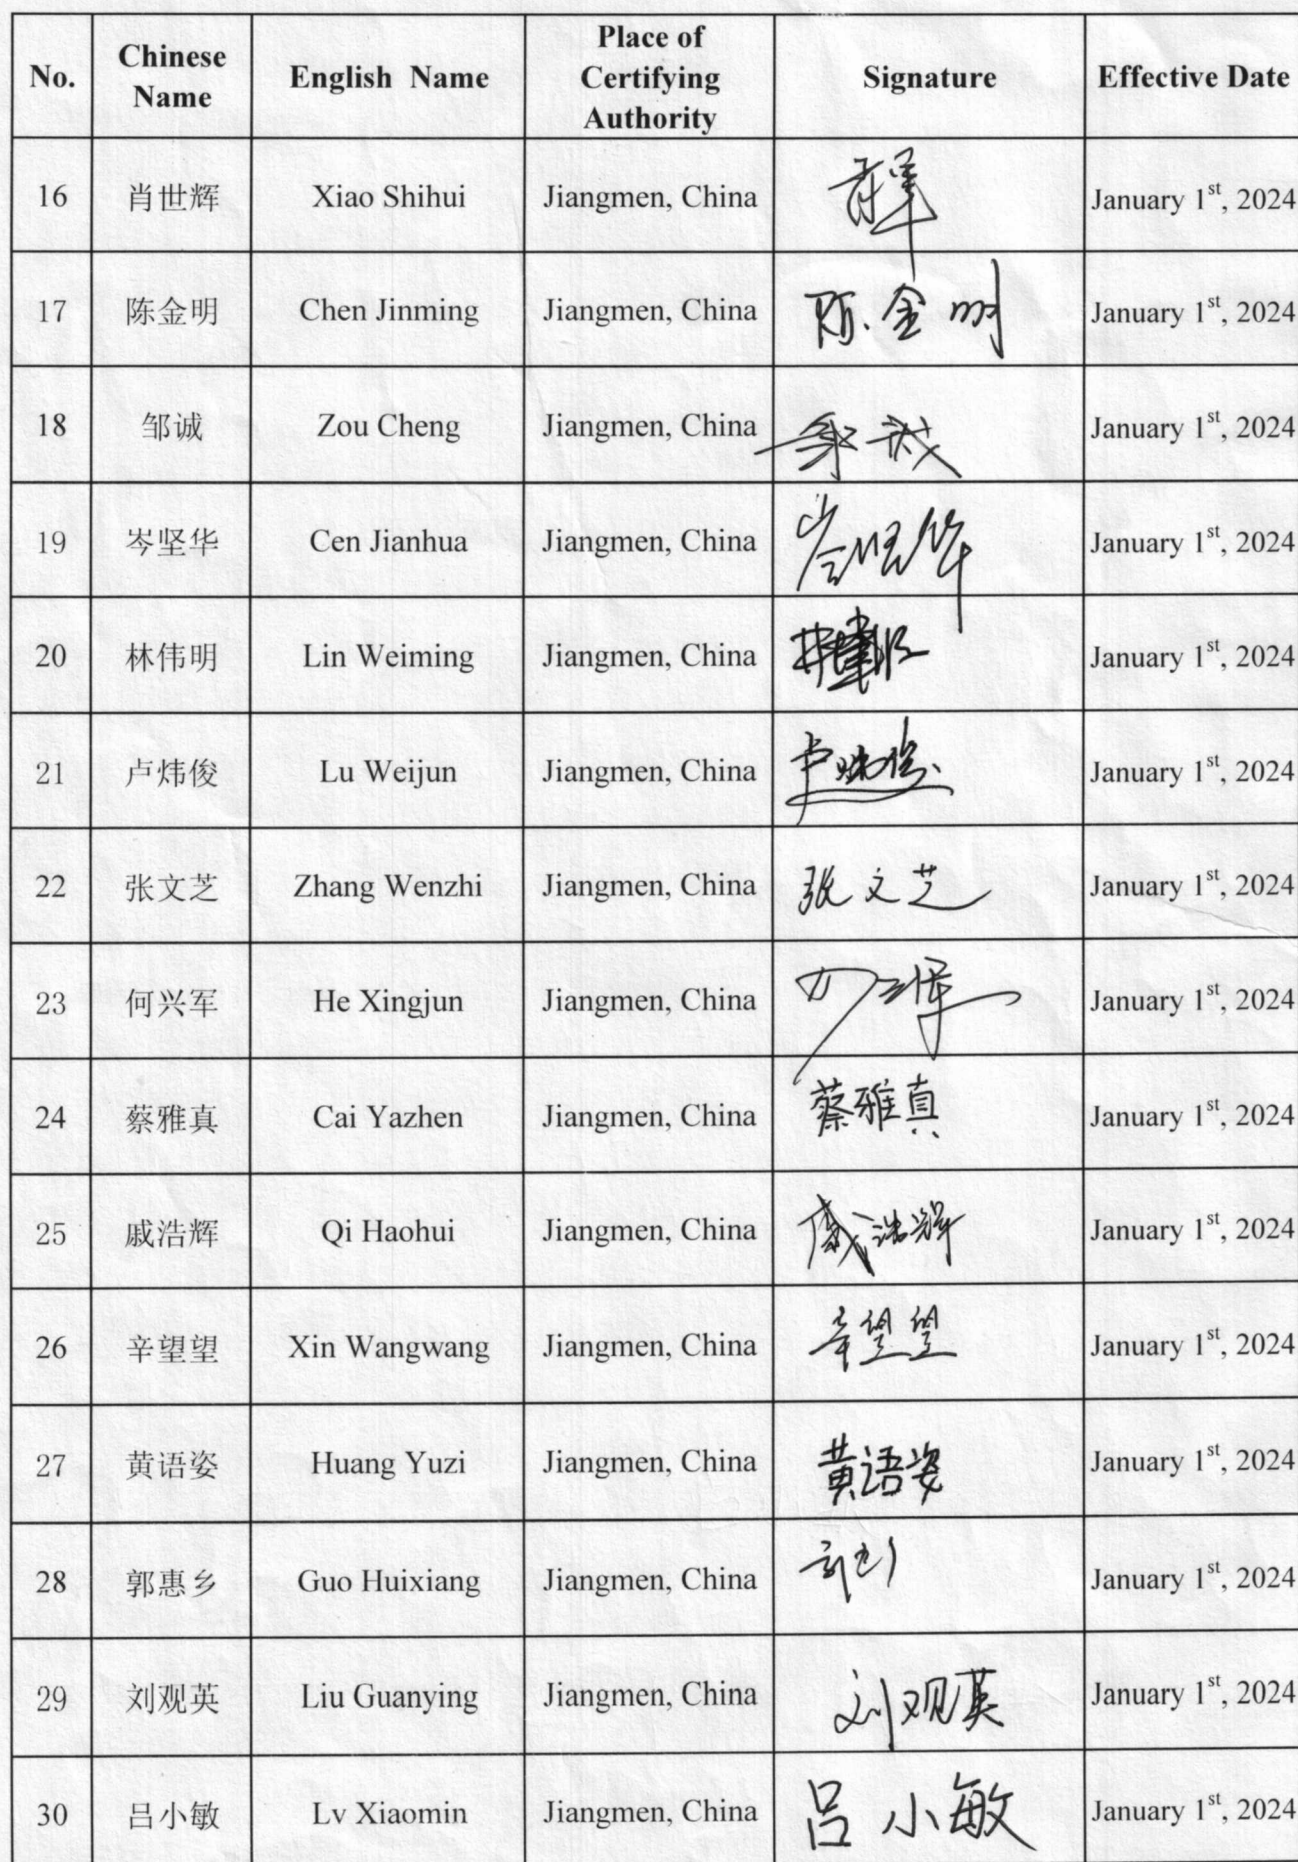 No. Chinese Name English Name Place of Certifying Authority Signature Effective Date
16 肖世辉 Xiao Shihui Jiangmen, China January 1st, 2024
17 陈金明 Chen Jinming Jiangmen, China 陈金明 January 1st, 2024
18 邹诚 Zou Cheng Jiangmen, China 邹诚 January 1st, 2024
19 岑坚华 Cen Jianhua Jiangmen, China 岑坚华 January 1st, 2024
20 林伟明 Lin Weiming Jiangmen, China January 1st, 2024
21 卢炜俊 Lu Weijun Jiangmen, China 卢炜俊 January 1st, 2024
22 张文芝 Zhang Wenzhi Jiangmen, China 张文芝 January 1st, 2024
23 何兴军 He Xingjun Jiangmen, China January 1st, 2024
24 蔡雅真 Cai Yazhen Jiangmen, China 蔡雅真 January 1st, 2024
25 戚浩辉 Qi Haohui Jiangmen, China 戚浩辉 January 1st, 2024
26 辛望望 Xin Wangwang Jiangmen, China 辛望望 January 1st, 2024
27 黄语姿 Huang Yuzi Jiangmen, China 黄语姿 January 1st, 2024
28 郭惠乡 Guo Huixiang Jiangmen, China January 1st, 2024
29 刘观英 Liu Guanying Jiangmen, China 刘观英 January 1st, 2024
30 吕小敏 Lv Xiaomin Jiangmen, China 吕小敏 January 1st, 2024